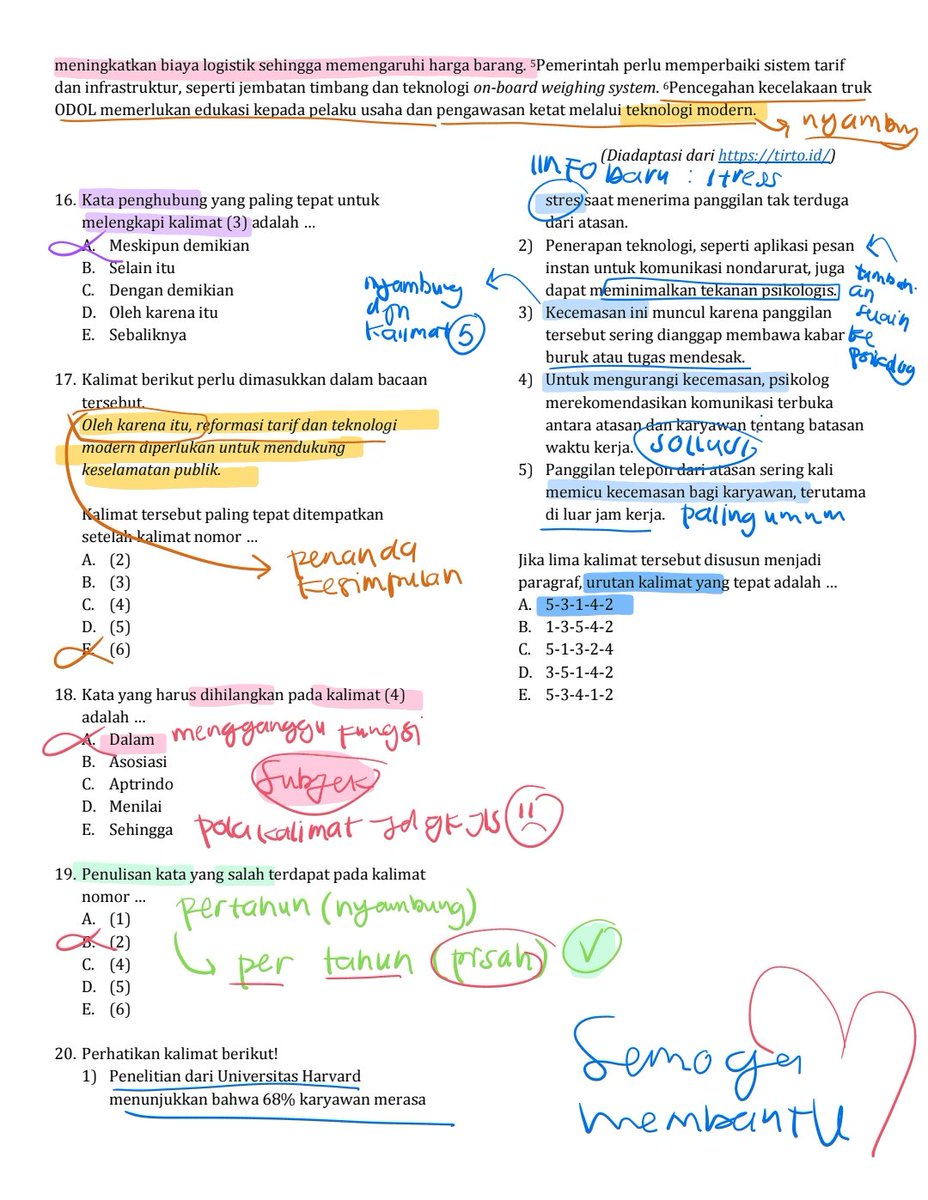 meningkatkan biaya logistik sehingga memengaruhi harga barang. ⁵Pemerintah perlu memperbaiki sistem tarif
dan infrastruktur, seperti jembatan timbang dan teknologi on-board weighing system. ⁶Pencegahan kecelakaan truk
ODOL memerlukan edukasi kepada pelaku usaha dan pengawasan ketat melalui teknologi modern.
nyambung
(Diadaptasi dari https://tirto.id/)
16. Kata penghubung yang paling tepat untuk
melengkapi kalimat (3) adalah ...
A. Meskipun demikian
B. Selain itu
C. Dengan demikian
D. Oleh karena itu
E. Sebaliknya
nyambung
dgn
kalimat 5
17. Kalimat berikut perlu dimasukkan dalam bacaan
tersebut.
Oleh karena itu, reformasi tarif dan teknologi
modern diperlukan untuk mendukung
keselamatan publik.
Kalimat tersebut paling tepat ditempatkan
setelah kalimat nomor ...
A. (2)
B. (3)
C. (4)
D. (5)
E. (6)
penanda
kesimpulan
18. Kata yang harus dihilangkan pada kalimat (4)
adalah ...
A. Dalam
B. Asosiasi
C. Aptrindo
D. Menilai
E. Sehingga
mengganggu fungsi
Subjek
pola kalimat jd gk jls
19. Penulisan kata yang salah terdapat pada kalimat
nomor ...
A. (1)
B. (2)
C. (4)
D. (5)
E. (6)
pertahun (nyambung)
per tahun (pisah)
20. Perhatikan kalimat berikut!
1) Penelitian dari Universitas Harvard
menunjukkan bahwa 68% karyawan merasa
INFO baru : stress
stres saat menerima panggilan tak terduga
dari atasan.
2) Penerapan teknologi, seperti aplikasi pesan
instan untuk komunikasi nondarurat, juga
dapat meminimalkan tekanan psikologis.
tambah
an
suain
ke
psikolog
3) Kecemasan ini muncul karena panggilan
tersebut sering dianggap membawa kabar
buruk atau tugas mendesak.
4) Untuk mengurangi kecemasan, psikolog
merekomendasikan komunikasi terbuka
antara atasan dan karyawan tentang batasan
waktu kerja.
sollusi
5) Panggilan telepon dari atasan sering kali
memicu kecemasan bagi karyawan, terutama
di luar jam kerja.
paling umum
Jika lima kalimat tersebut disusun menjadi
paragraf, urutan kalimat yang tepat adalah ...
A. 5-3-1-4-2
B. 1-3-5-4-2
C. 5-1-3-2-4
D. 3-5-1-4-2
E. 5-3-4-1-2
Semoga
membantu